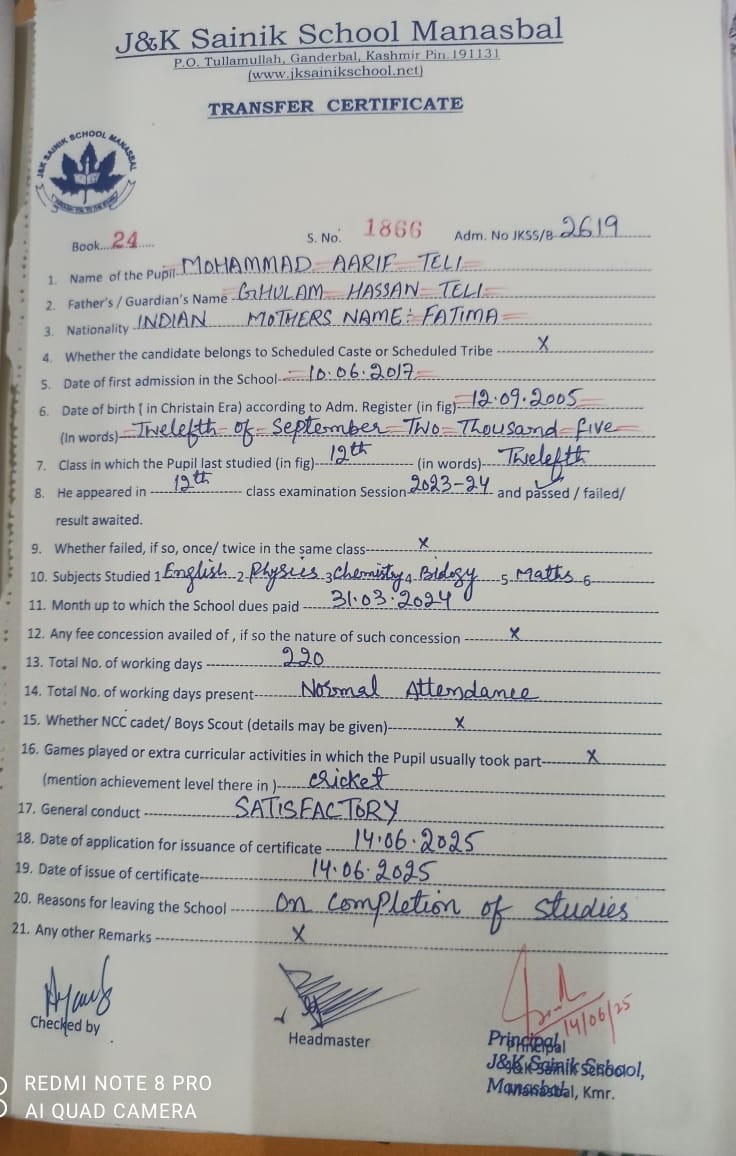 J&K Sainik School Manasbal
P.O. Tullamullah, Ganderbal, Kashmir Pin.191131
(www.jksainikschool.net)
TRANSFER CERTIFICATE
J&K SAINIK SCHOOL MANASBAL
Book...24..... S. No. 1866 Adm. No JKSS/B 2619
1. Name of the Pupil MOHAMMAD AARIF TELI
2. Father's / Guardian's Name GHULAM HASSAN TELI
3. Nationality INDIAN MOTHERS NAME: FATIMA
4. Whether the candidate belongs to Scheduled Caste or Scheduled Tribe X
5. Date of first admission in the School 10.06.2017
6. Date of birth ( in Christain Era) according to Adm. Register (in fig) 12.09.2005
(In words) Twelefth of September Two Thousand five
7. Class in which the Pupil last studied (in fig) 12th (in words) Twelefth
8. He appeared in 12th class examination Session 2023-24 and passed / failed/
result awaited.
9. Whether failed, if so, once/ twice in the same class X
10. Subjects Studied 1 English 2 Physics 3 Chemistry 4 Biology 5 Maths 6
11. Month up to which the School dues paid 31.03.2024
12. Any fee concession availed of , if so the nature of such concession X
13. Total No. of working days 220
14. Total No. of working days present Normal Attendance
15. Whether NCC cadet/ Boys Scout (details may be given) X
16. Games played or extra curricular activities in which the Pupil usually took part X
(mention achievement level there in ) cricket
17. General conduct SATISFACTORY
18. Date of application for issuance of certificate 14.06.2025
19. Date of issue of certificate 14.06.2025
20. Reasons for leaving the School on completion of studies
21. Any other Remarks X
14/06/25
Checked by Headmaster Principal
J&K Sainik School,
Manasbal, Kmr.
REDMI NOTE 8 PRO
AI QUAD CAMERA